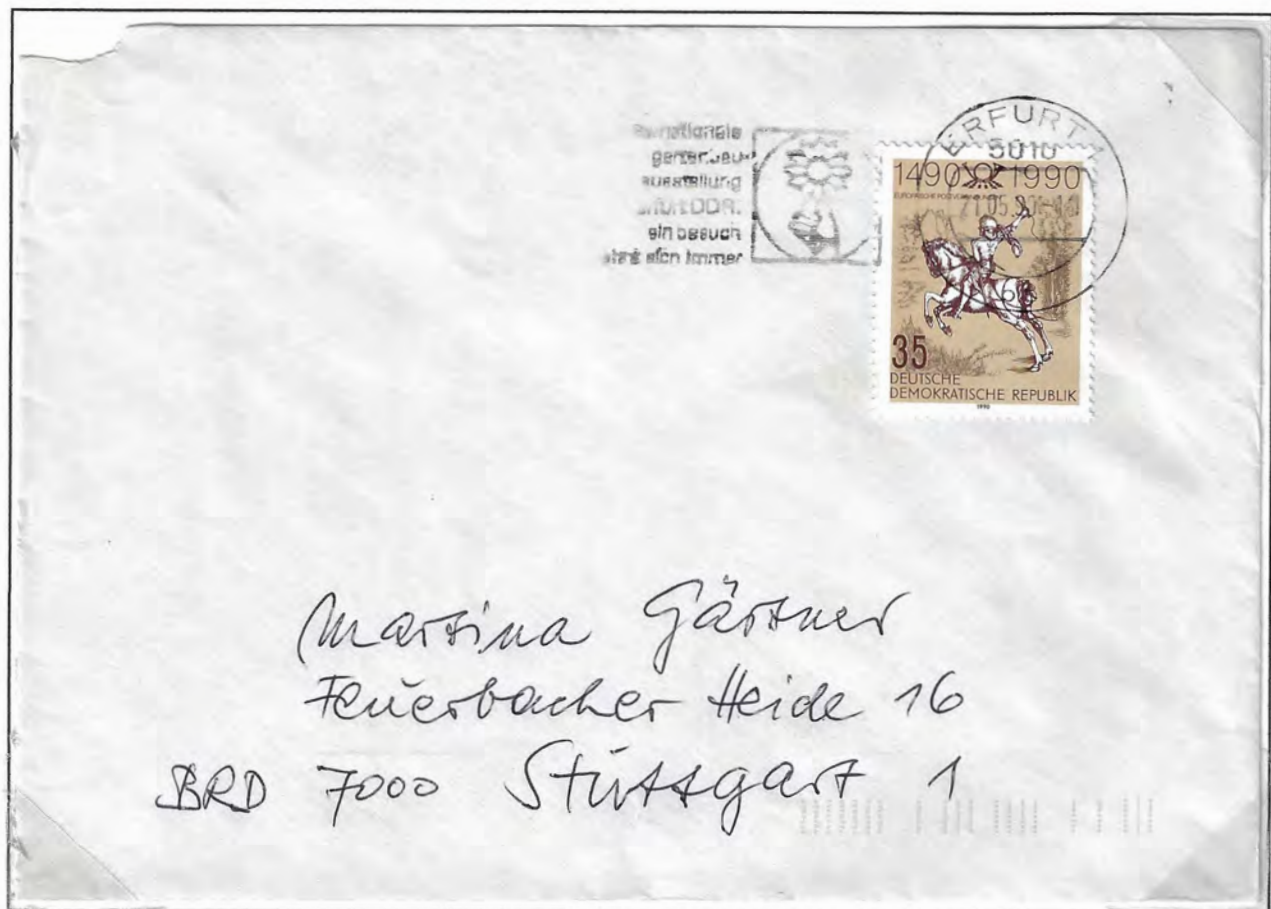 gartenbau
ausstellung
erfurt DDR.
ein besuch
sich immer
ERFURT 1
5010
1490 1990
35
DEUTSCHE
DEMOKRATISCHE REPUBLIK
1990
Martina Gärtner
Feuerbacher Heide 16
BRD 7000 Stuttgart 1